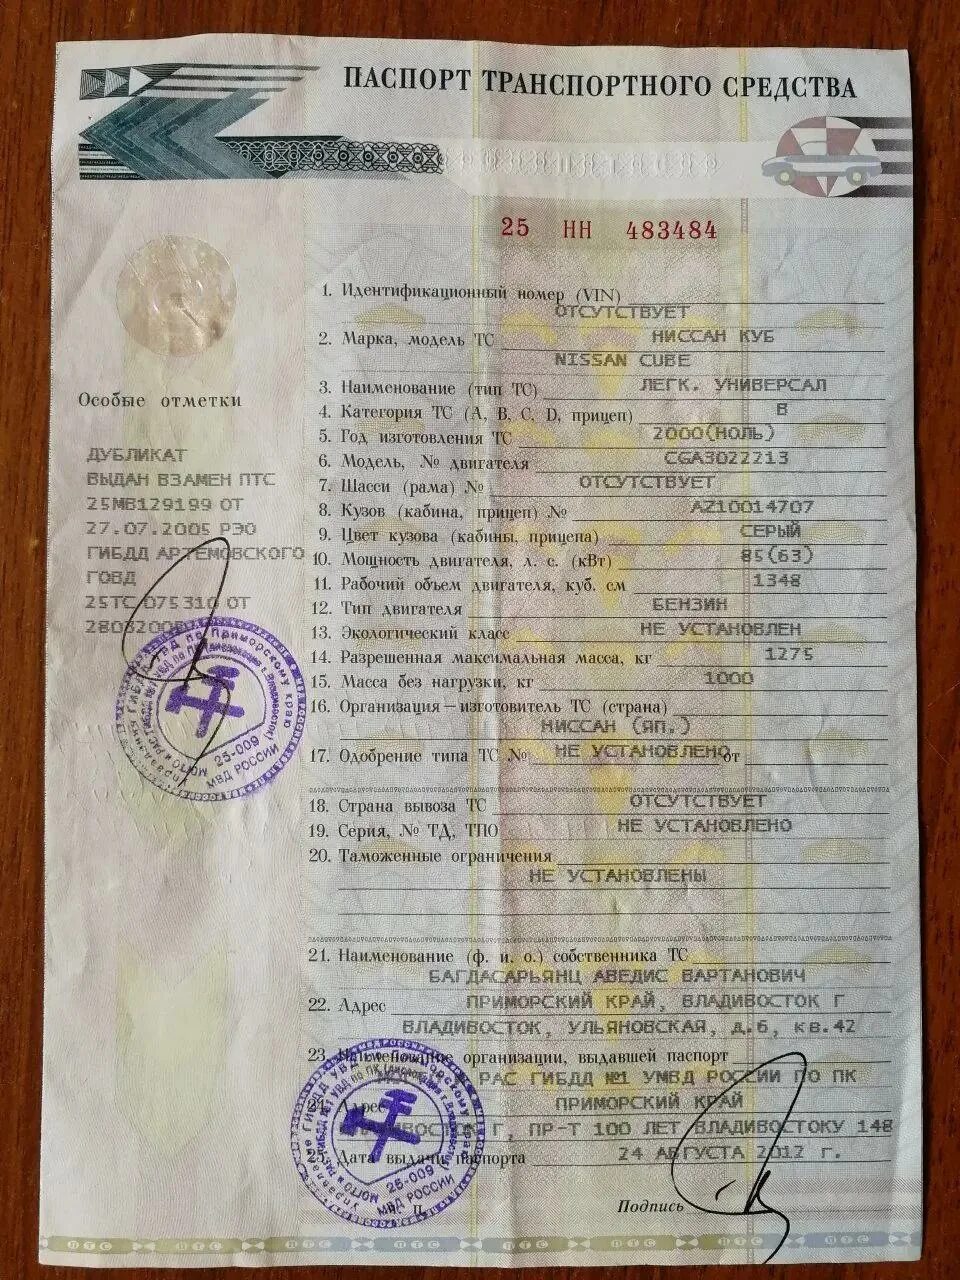 ПАСПОРТ ТРАНСПОРТНОГО СРЕДСТВА
25 НН 483484
1. Идентификационный номер (VIN)
ОТСУТСТВУЕТ
2. Марка, модель ТС НИССАН КУБ
NISSAN CUBE
3. Наименование (тип ТС) ЛЕГК. УНИВЕРСАЛ
4. Категория ТС (А, В, С, D, прицеп) В
5. Год изготовления ТС 2000(НОЛЬ)
6. Модель, № двигателя CGA3022213
7. Шасси (рама) № ОТСУТСТВУЕТ
8. Кузов (кабина, прицеп) № AZ10014707
9. Цвет кузова (кабины, прицепа) СЕРЫЙ
10. Мощность двигателя, л. с. (кВт) 85(63)
11. Рабочий объем двигателя, куб. см 1348
12. Тип двигателя БЕНЗИН
13. Экологический класс НЕ УСТАНОВЛЕН
14. Разрешенная максимальная масса, кг 1275
15. Масса без нагрузки, кг 1000
16. Организация—изготовитель ТС (страна)
НИССАН (ЯП.)
17. Одобрение типа ТС № НЕ УСТАНОВЛЕНО от
18. Страна вывоза ТС ОТСУТСТВУЕТ
19. Серия, № ТД, ТПО НЕ УСТАНОВЛЕНО
20. Таможенные ограничения
НЕ УСТАНОВЛЕНЫ
21. Наименование (ф. и. о.) собственника ТС
БАГДАСАРЬЯНЦ АВЕДИС ВАРТАНОВИЧ
22. Адрес ПРИМОРСКИЙ КРАЙ, ВЛАДИВОСТОК Г
ВЛАДИВОСТОК, УЛЬЯНОВСКАЯ, д.6, кв.42
23. Наименование организации, выдавшей паспорт
РАС ГИБДД №1 УМВД РОССИИ ПО ПК
24. Адрес ПРИМОРСКИЙ КРАЙ
Г, ПР-Т 100 ЛЕТ ВЛАДИВОСТОКУ 148
25. Дата выдачи паспорта 24 АВГУСТА 2012 г.
М. П.
Подпись
Особые отметки
ДУБЛИКАТ
ВЫДАН ВЗАМЕН ПТС
25МВ129199 ОТ
27.07.2005 РЭО
ГИБДД АРТЕМОВСКОГО
ГОВД
25ТС 075310 ОТ
по Приморскому краю
25-009
МВД РОССИИ
25-009
МВД РОССИИ
ПТС ПТС ПТС ПТС ПТС ПТС ПТС ПТС